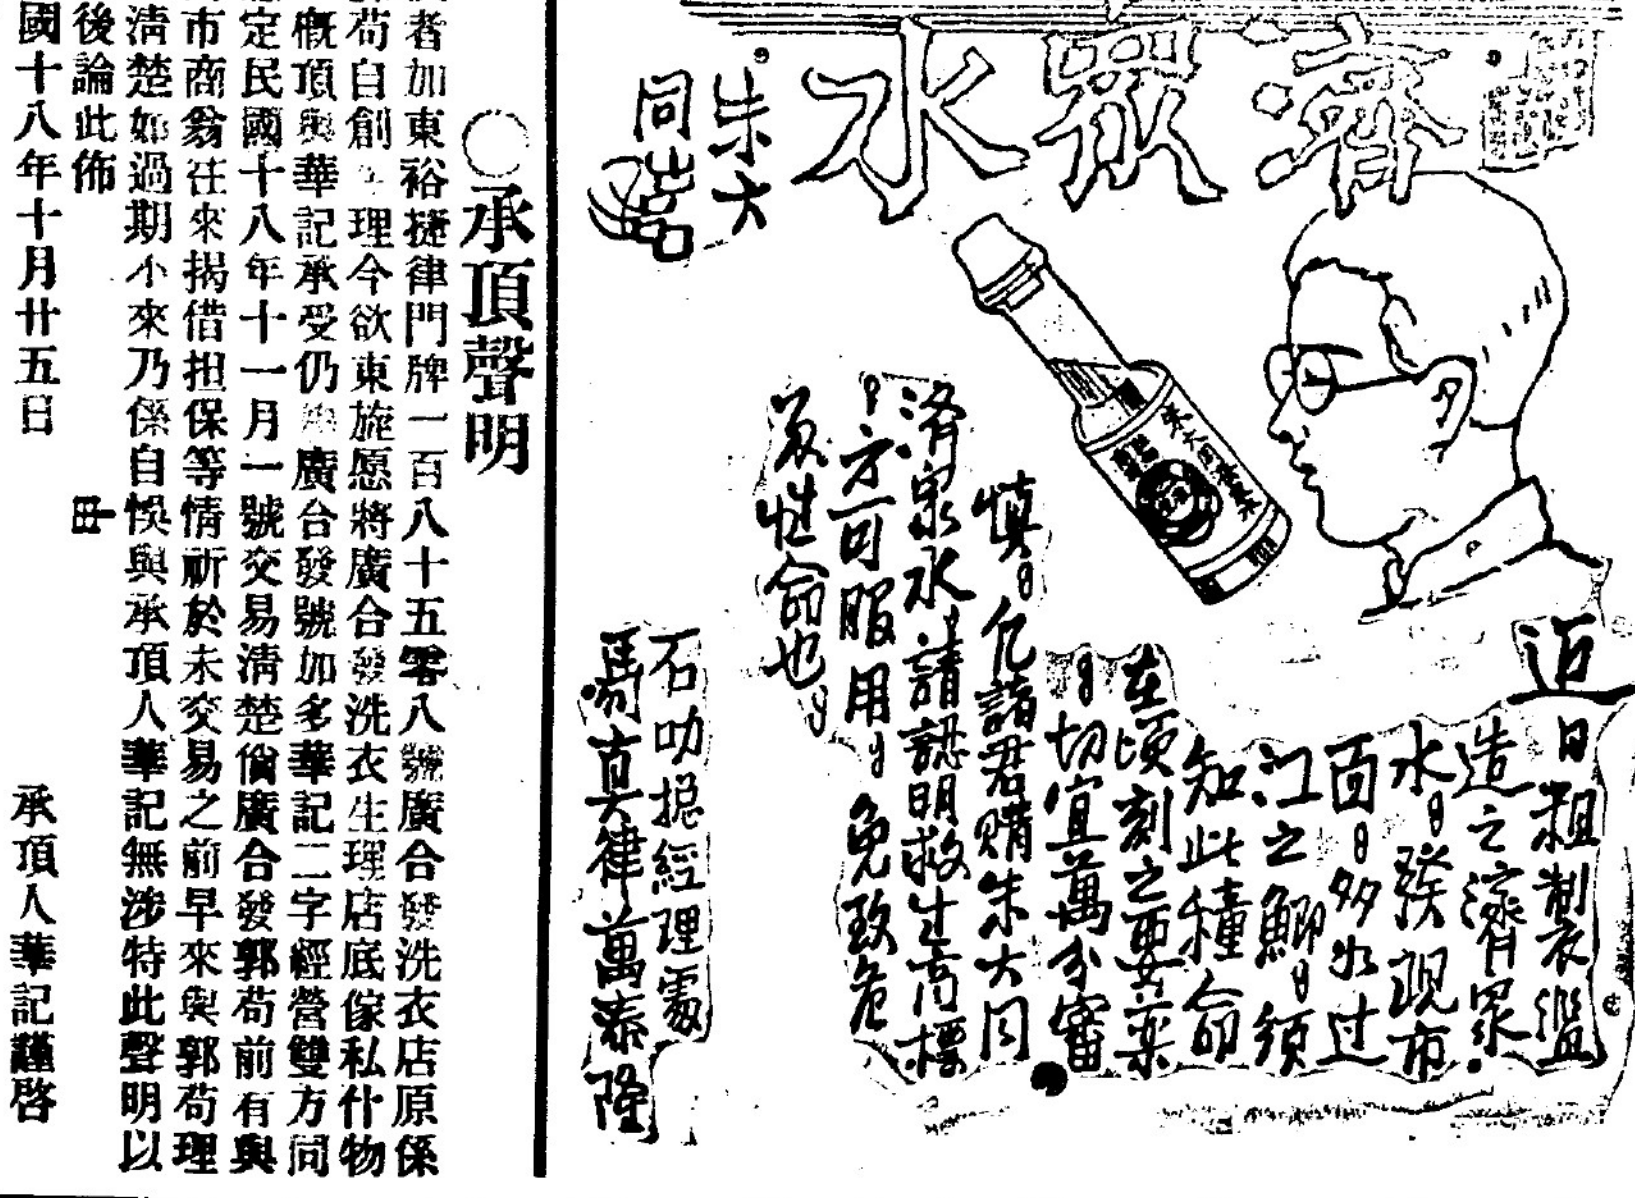 濟眾水
朱大
同嵩
近日粗製濫
造之濟眾
水。發現市
面。多如过
江之鯽。須
知此種命
在頃刻之要药
。切宜萬分審
慎。凡諸君購朱大同
濟眾水。請認明救生商標
。方可服用。免致危
及性命也。
石叻總經理處
馬真律萬泰隆
○承頂聲明
者加東裕捷律門牌一百八十五零八號廣合發洗衣店原係
苟自創 理今欲東旋愿將廣合發洗衣生理店底傢私什物
概頂與華記承受仍 廣合發號加多華記二字經營雙方同
定民國十八年十一月一號交易清楚倘廣合發郭苟前有與
市商翁往來揭借担保等情祈於未交易之前早來與郭苟理
清楚如過期不來乃係自悞與承頂人華記無涉特此聲明以
後論此佈
國十八年十月廿五日 承頂人華記謹啓